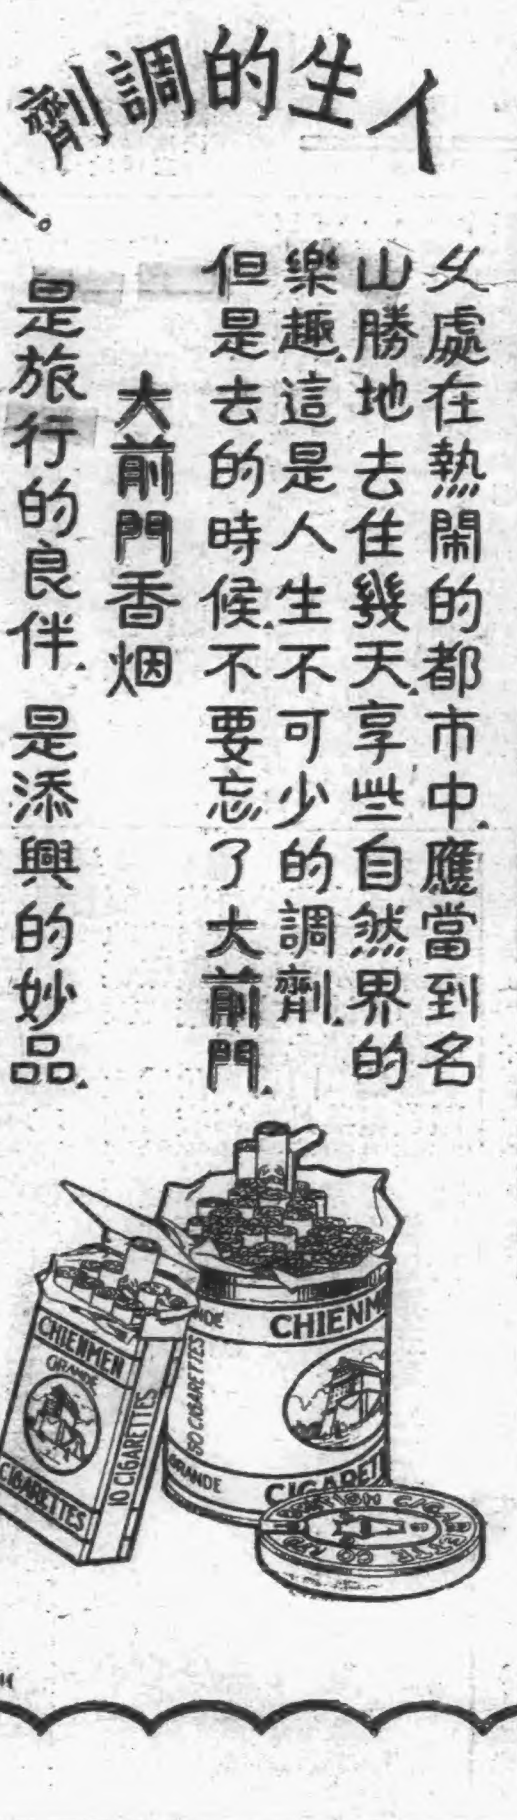 人生的調劑
久處在熱鬧的都市中.應當到名
山勝地去住幾天.享些自然界的
樂趣.這是人生不可少的調劑.
但是去的時候.不要忘了大前門.
大前門香烟
是旅行的良伴.是添興的妙品.
CHIENMEN
GRANDE
CIGARETTES
10 CIGARETTES
CHIENM
50 CIGARETTES
GRANDE
CIGARET
CIGARETTE CO LTD